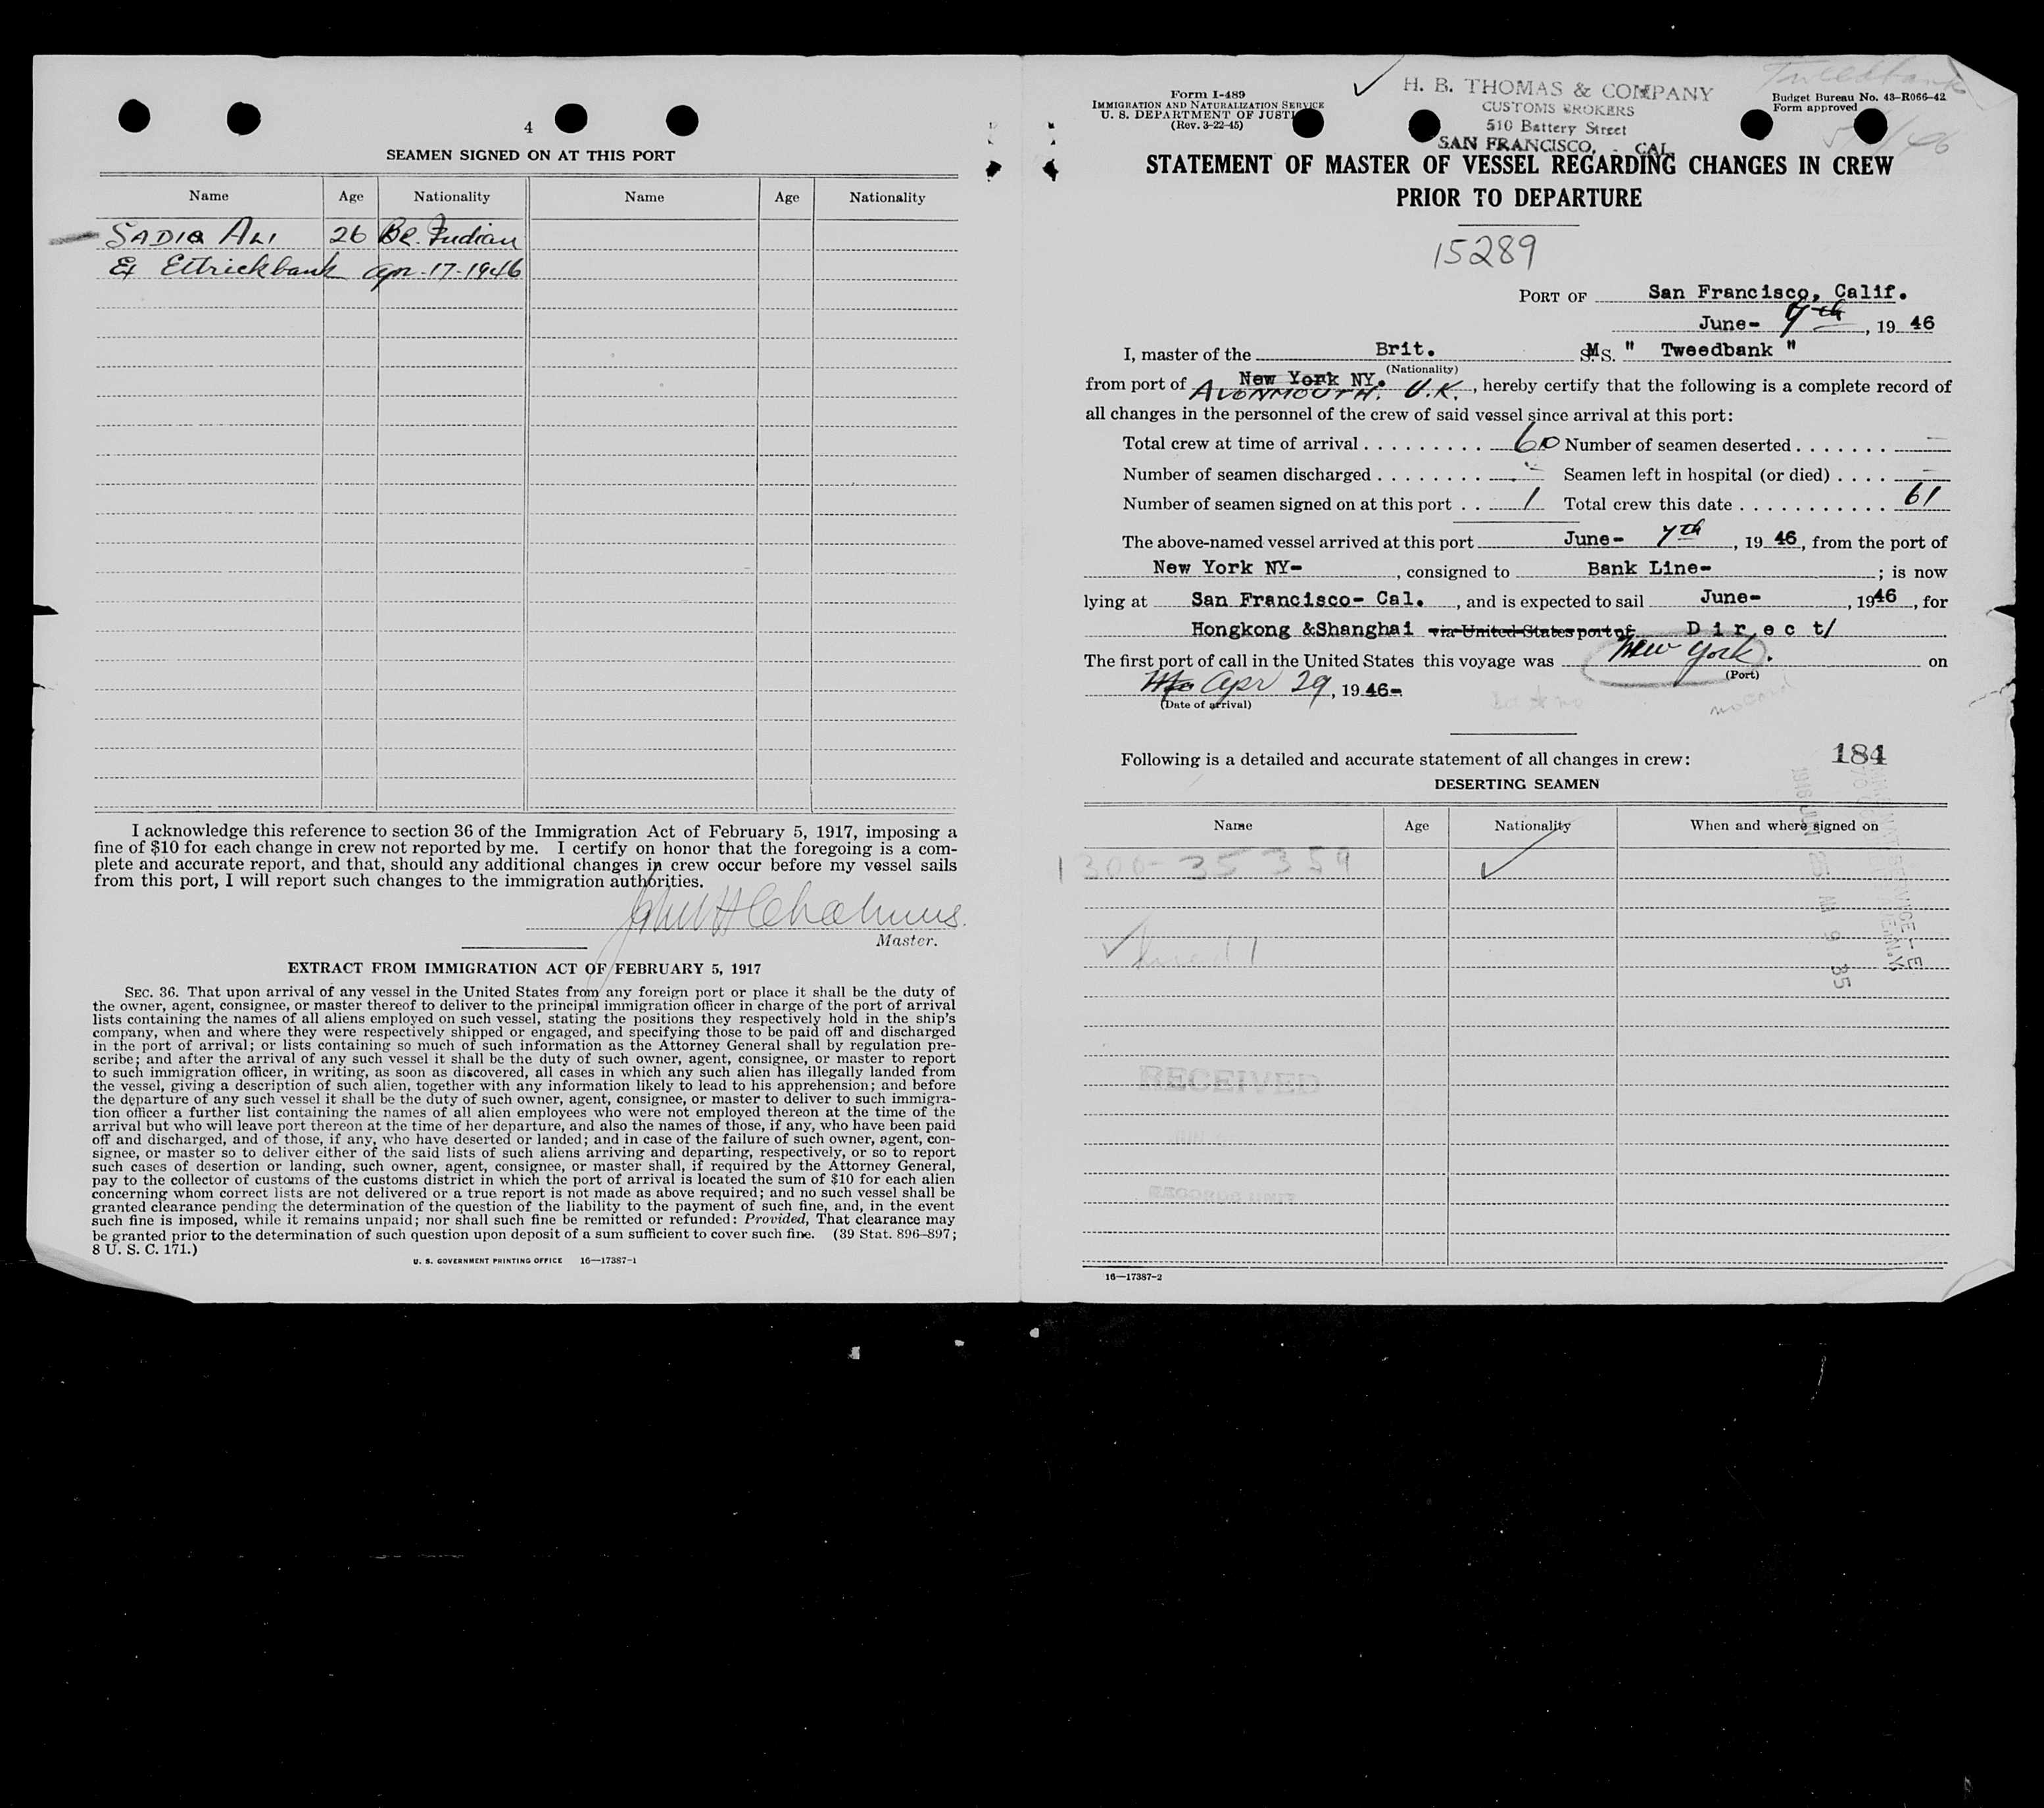 4
SEAMEN SIGNED ON AT THIS PORT
Name Age Nationality Name Age Nationality
SADIQ ALI 26 Br. Indian
Ex Ettrickbank Apr-17-1946
I acknowledge this reference to section 36 of the Immigration Act of February 5, 1917, imposing a
fine of $10 for each change in crew not reported by me. I certify on honor that the foregoing is a com-
plete and accurate report, and that, should any additional changes in crew occur before my vessel sails
from this port, I will report such changes to the immigration authorities.
Master.
EXTRACT FROM IMMIGRATION ACT OF FEBRUARY 5, 1917
SEC. 36. That upon arrival of any vessel in the United States from any foreign port or place it shall be the duty of
the owner, agent, consignee, or master thereof to deliver to the principal immigration officer in charge of the port of arrival
lists containing the names of all aliens employed on such vessel, stating the positions they respectively hold in the ship's
company, when and where they were respectively shipped or engaged, and specifying those to be paid off and discharged
in the port of arrival; or lists containing so much of such information as the Attorney General shall by regulation pre-
scribe; and after the arrival of any such vessel it shall be the duty of such owner, agent, consignee, or master to report
to such immigration officer, in writing, as soon as discovered, all cases in which any such alien has illegally landed from
the vessel, giving a description of such alien, together with any information likely to lead to his apprehension; and before
the departure of any such vessel it shall be the duty of such owner, agent, consignee, or master to deliver to such immigra-
tion officer a further list containing the names of all alien employees who were not employed thereon at the time of the
arrival but who will leave port thereon at the time of her departure, and also the names of those, if any, who have been paid
off and discharged, and of those, if any, who have deserted or landed; and in case of the failure of such owner, agent, con-
signee, or master so to deliver either of the said lists of such aliens arriving and departing, respectively, or so to report
such cases of desertion or landing, such owner, agent, consignee, or master shall, if required by the Attorney General,
pay to the collector of customs of the customs district in which the port of arrival is located the sum of $10 for each alien
concerning whom correct lists are not delivered or a true report is not made as above required; and no such vessel shall be
granted clearance pending the determination of the question of the liability to the payment of such fine, and, in the event
such fine is imposed, while it remains unpaid; nor shall such fine be remitted or refunded: Provided, That clearance may
be granted prior to the determination of such question upon deposit of a sum sufficient to cover such fine. (39 Stat. 896-897;
8 U. S. C. 171.)
U. S. GOVERNMENT PRINTING OFFICE 16—17387-1
Form I-489
IMMIGRATION AND NATURALIZATION SERVICE
U. S. DEPARTMENT OF JUSTI
(Rev. 3-22-45)
H. B. THOMAS & COMPANY
CUSTOMS BROKERS
510 Battery Street
SAN FRANCISCO, - CAL
Tweedbank
Budget Bureau No. 43-R066-42
Form approved
STATEMENT OF MASTER OF VESSEL REGARDING CHANGES IN CREW
PRIOR TO DEPARTURE
15289
PORT OF San Francisco, Calif.
June- 7th, 19 46
I, master of the Brit. M S. " Tweedbank "
(Nationality)
from port of New York NY. AVONMOUTH. U.K., hereby certify that the following is a complete record of
all changes in the personnel of the crew of said vessel since arrival at this port:
Total crew at time of arrival . . . . . . . . . 60 Number of seamen deserted . . . . . . . —
Number of seamen discharged . . . . . . . . — Seamen left in hospital (or died) . . . . —
Number of seamen signed on at this port . . 1 Total crew this date . . . . . . . . . . . 61
The above-named vessel arrived at this port June- 7th, 19 46, from the port of
New York NY-, consigned to Bank Line-; is now
lying at San Francisco- Cal., and is expected to sail June-, 1946, for
Hongkong &Shanghai via United States port of Direct/
The first port of call in the United States this voyage was New York. on
(Port)
Apr 29, 19 46-.
(Date of arrival)
Following is a detailed and accurate statement of all changes in crew:
184
DESERTING SEAMEN
Name Age Nationality When and where signed on
1300-35359
RECEIVED
RECORDS UNIT
16—17387-2